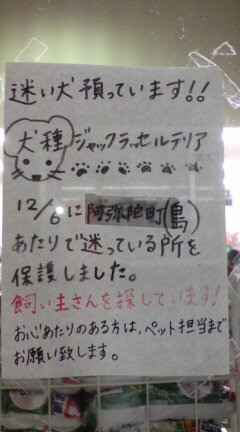 迷い犬預っています!!
犬種 ジャックラッセルテリア
12/6に阿弥陀町(島)
あたりで迷っている所を
保護しました。
飼い主さんを探しています!
お心あたりのある方は、ペット担当まで
お願い致します。